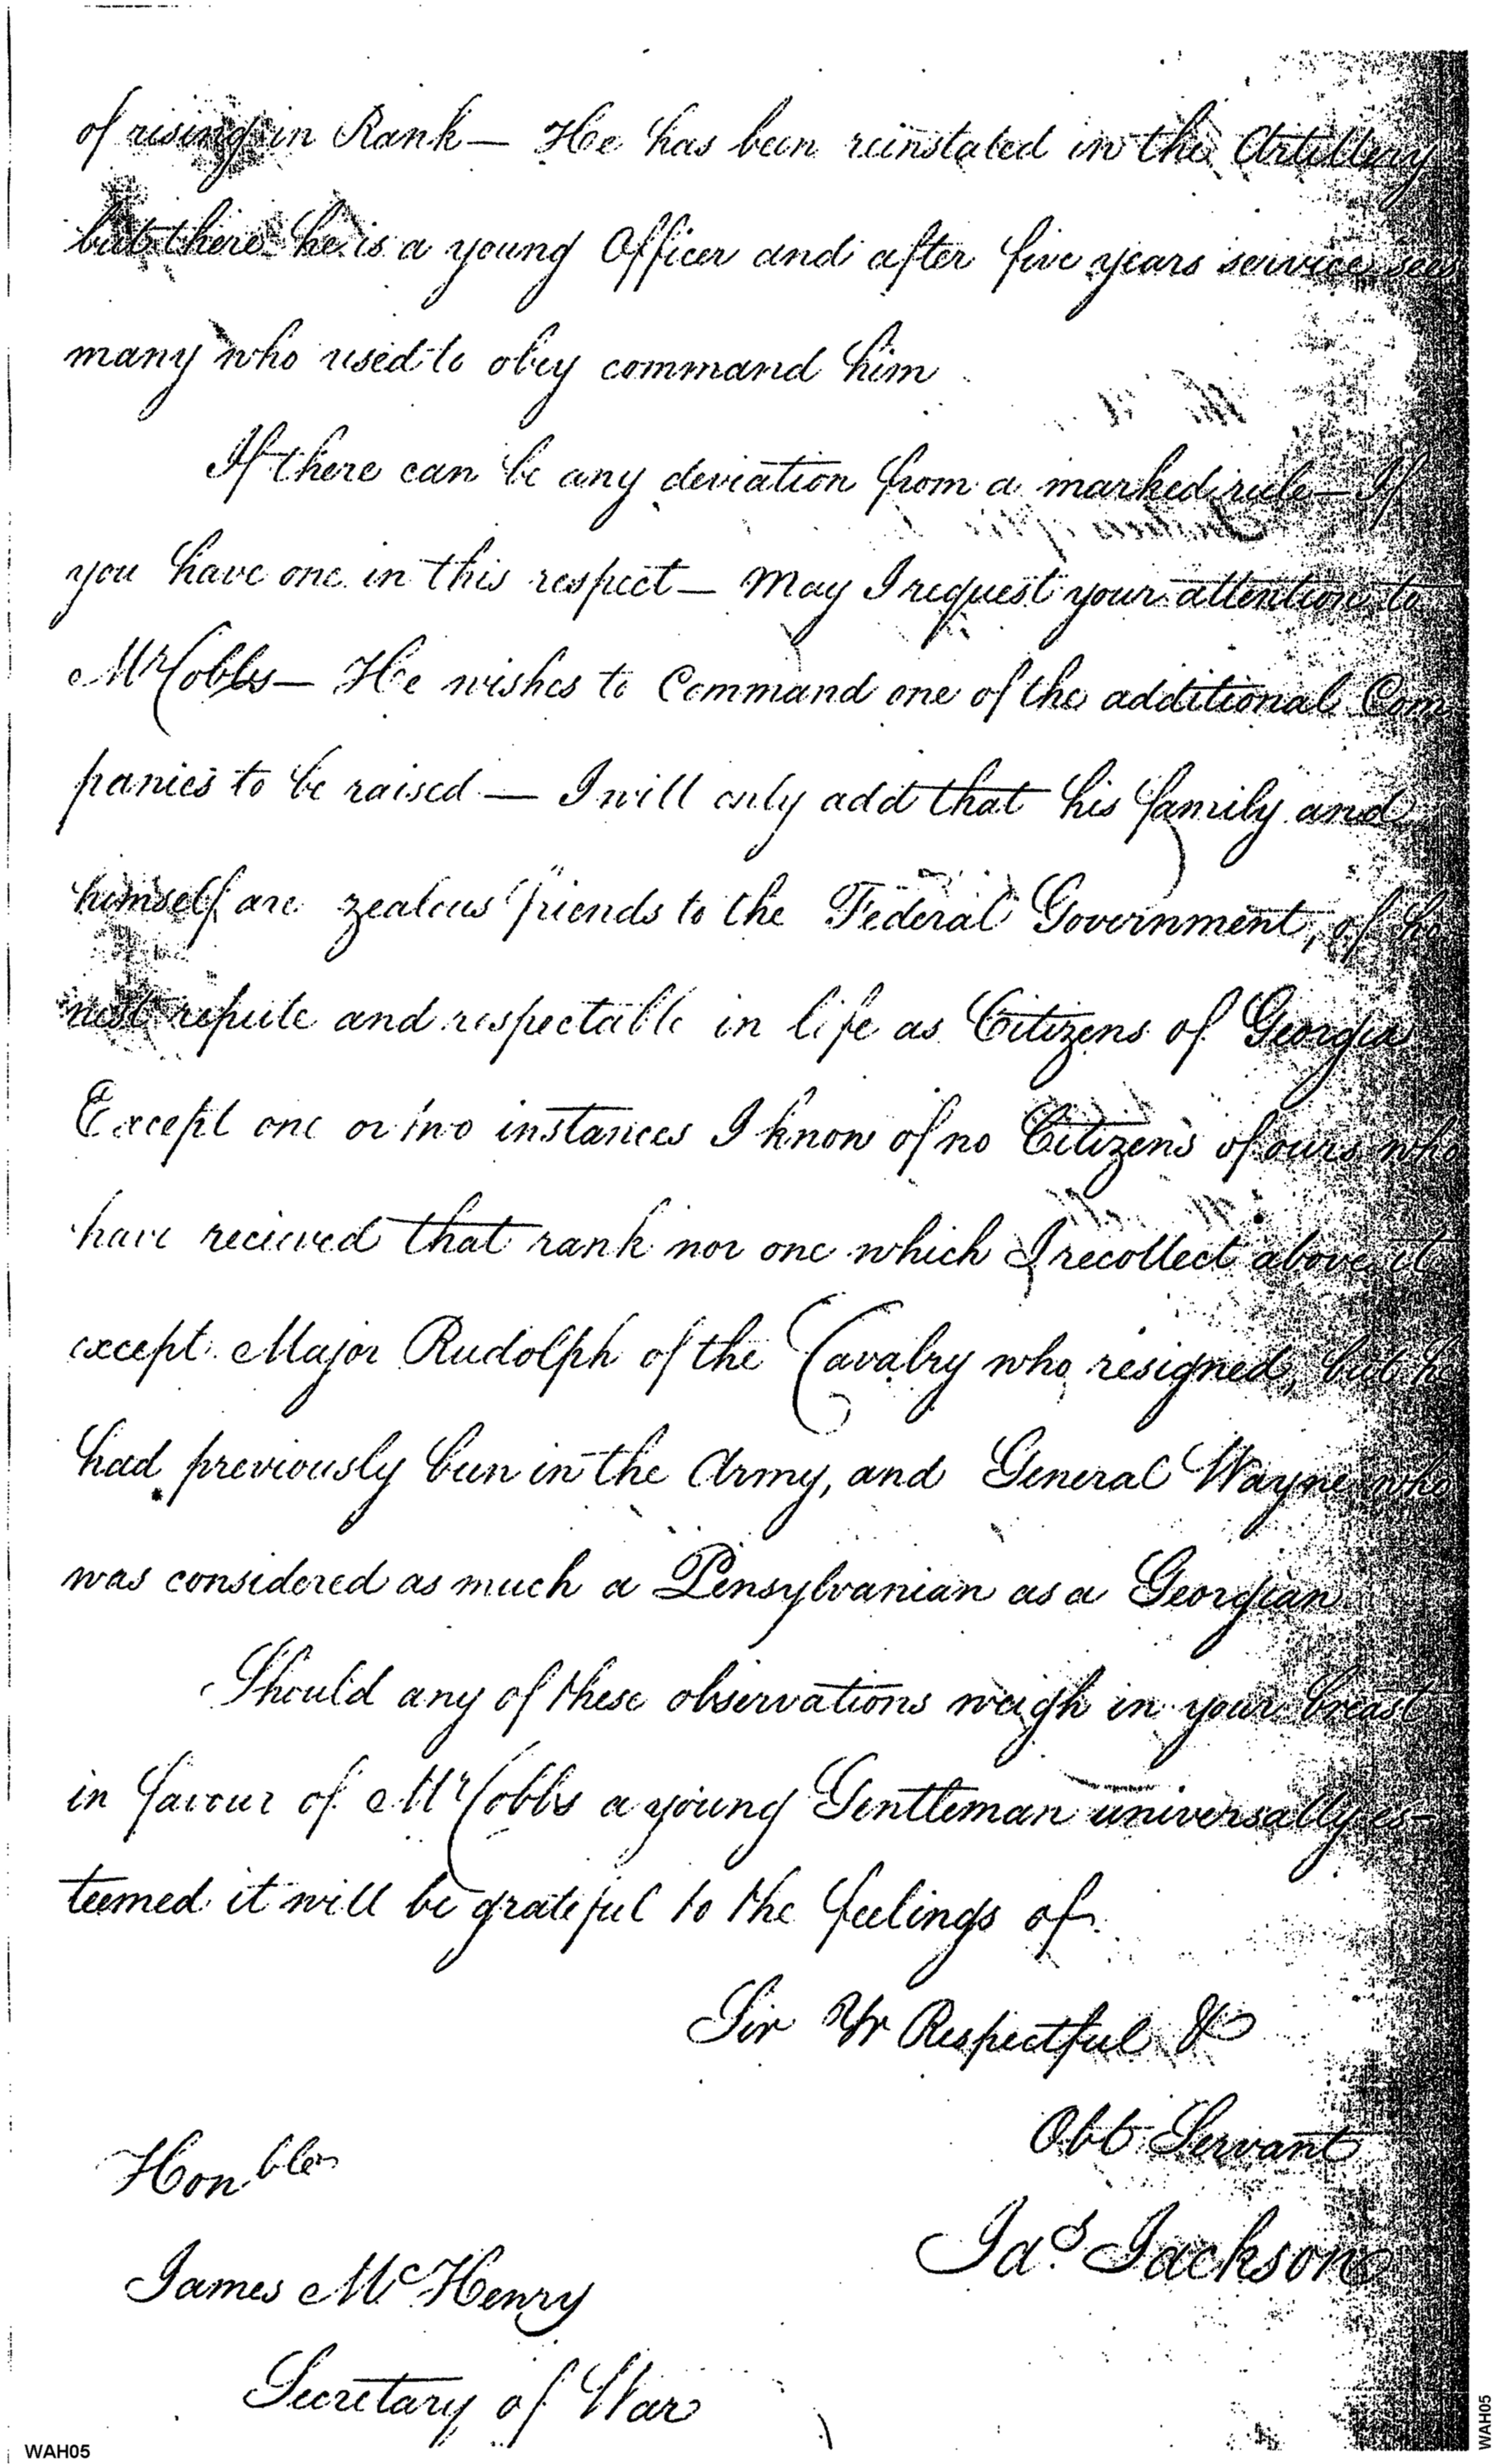 of rising in Rank — He has been reinstated in the Artillery
but there he is a young Officer and after five years service sees
many who used to obey command him
If there can be any deviation from a marked rule — If
you have one in this respect — May I request your attention to
Mr Cobbs — He wishes to Command one of the additional Com
panies to be raised — I will only add that his family and
himself are zealous friends to the Federal Government, of ho
nest repute and respectable in life as Citizens of Georgia
Except one or two instances I know of no Citizens of ours who
have recieved that rank nor one which I recollect above it
except Major Rudolph of the Cavalry who resigned, but he
had previously been in the Army, and General Wayne who
was considered as much a Pensylvanian as a Georgian
Should any of these observations weigh in your breast
in favour of Mr Cobbs a young Gentleman universally es-
teemed it will be grateful to the feelings of
Sir Yr Respectful &
Obt Servant
Jas. Jackson
Honble
James McHenry
Secretary of War
WAH05
WAH05